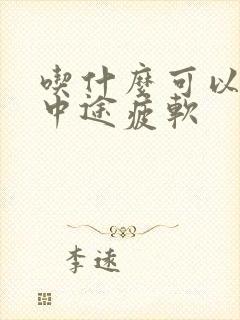 喫什麼可以
中途疲軟
李逺